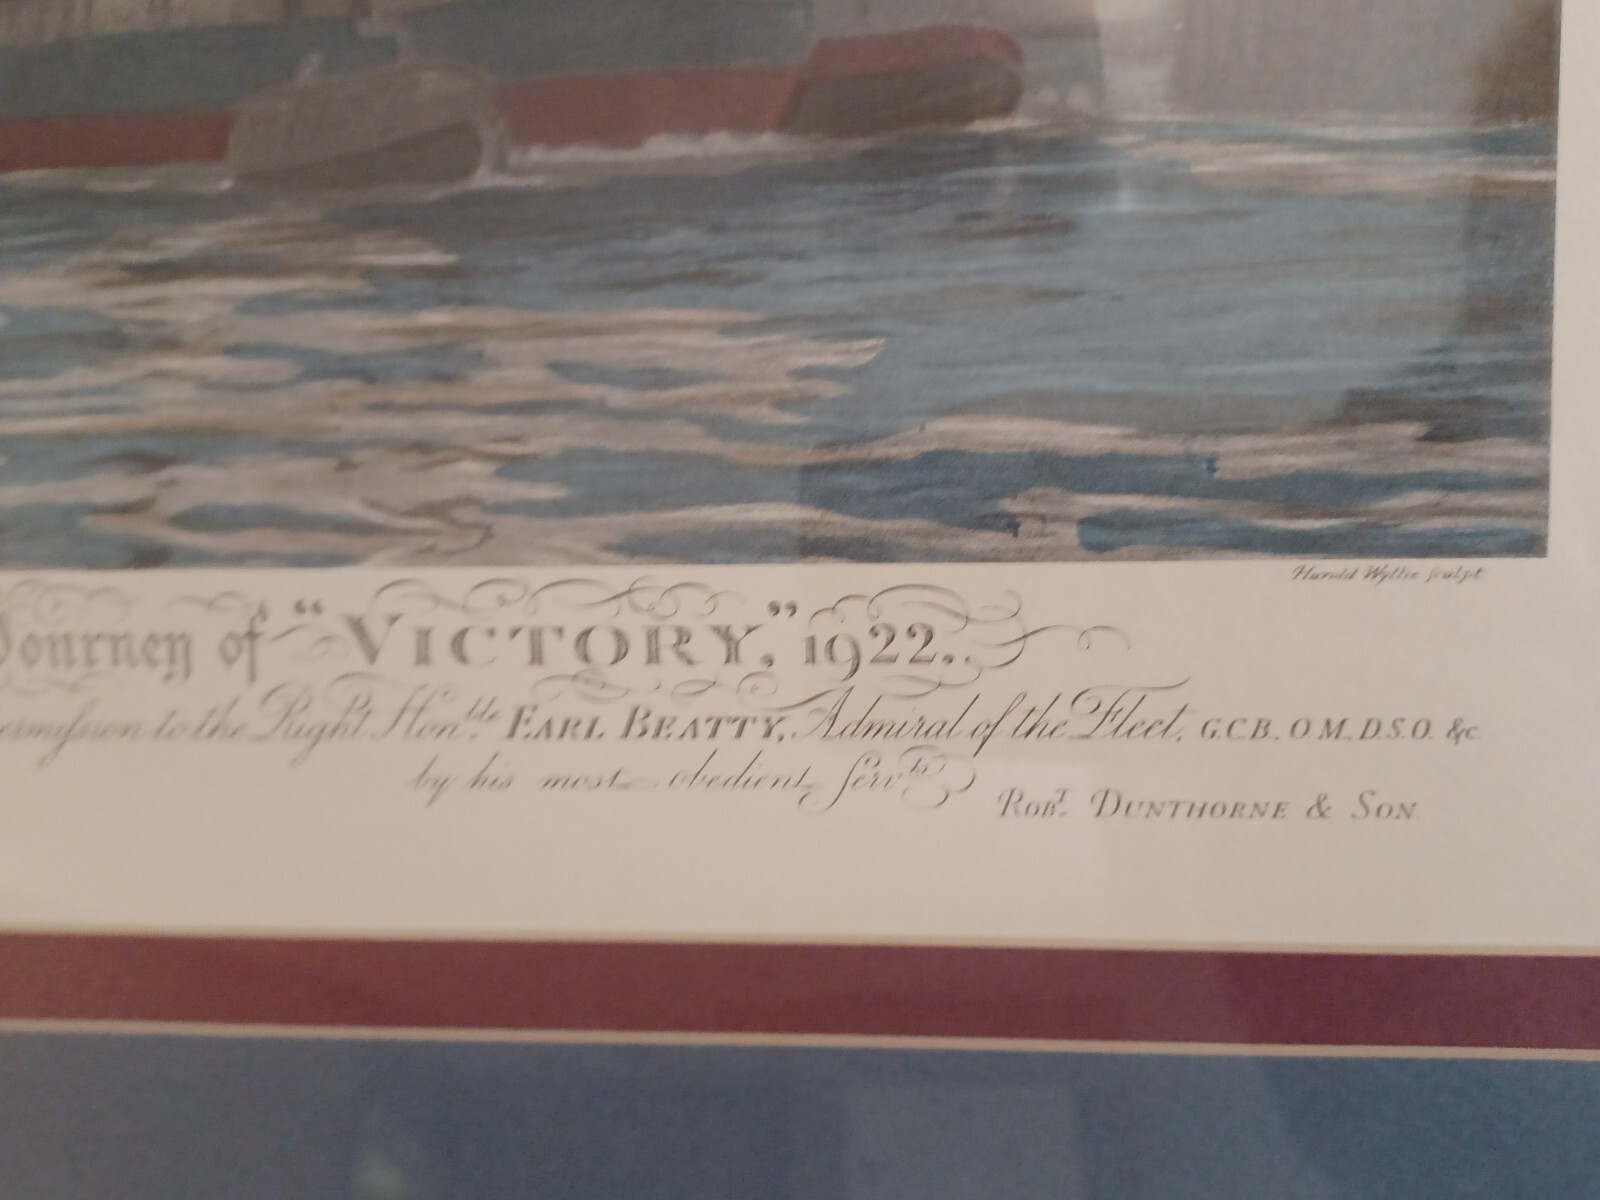 Harold Wyllie sculpt
Journey of "VICTORY," 1922.
permission to the Right Honble. EARL BEATTY, Admiral of the Fleet, G.C.B., O.M., D.S.O. &c
by his most obedient Servts
ROBT. DUNTHORNE & SON.